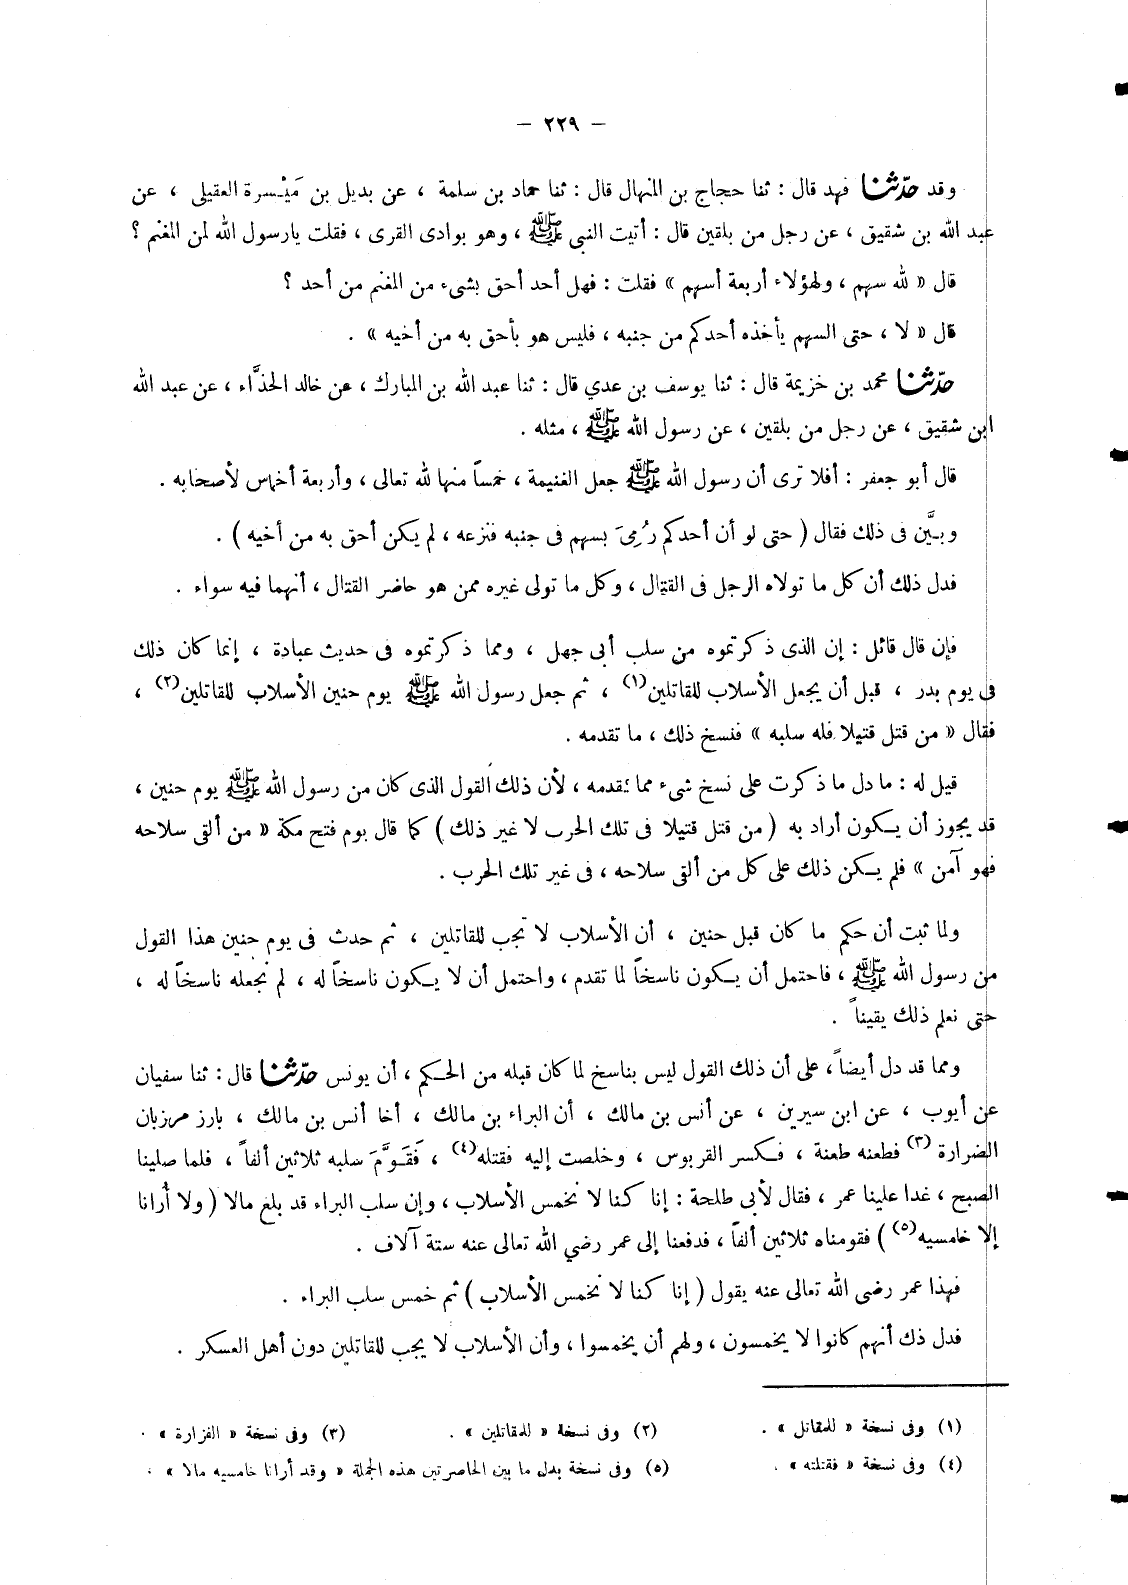 — ٢٢٩ —
وقد حدّثنا فهد قال : ثنا حجاج بن المنهال قال : ثنا حماد بن سلمة ، عن بديل بن مَيْسرة العقيلى ، عن
عبد الله بن شقيق ، عن رجل من بلقين قال : أتيت النبى ﷺ ، وهو بوادى القرى ، فقلت يارسول الله لمن المغنم ؟
قال « لله سهم ، ولهؤلاء أربعة أسهم » فقلت : فهل أحد أحق بشىء من المغنم من أحد ؟
قال « لا ، حتى السهم يأخذه أحدكم من جنبه ، فليس هو بأحق به من أخيه » .
حدّثنا محمد بن خزيمة قال : ثنا يوسف بن عدي قال : ثنا عبد الله بن المبارك ، عن خالد الحذَّاء ، عن عبد الله
ابن شقيق ، عن رجل من بلقين ، عن رسول الله ﷺ ، مثله .
قال أبو جعفر : أفلا ترى أن رسول الله ﷺ جعل الغنيمة ، خمساً منها لله تعالى ، وأربعة أخماس لأصحابه .
وبيَّن فى ذلك فقال ( حتى لو أن أحدكم رُمِىَ بسهم فى جنبه فنزعه ، لم يكن أحق به من أخيه ) .
فدل ذلك أن كل ما تولاه الرجل فى القتال ، وكل ما تولى غيره ممن هو حاضر القتال ، أنهما فيه سواء .
فإن قال قائل : إن الذى ذكرتموه من سلب أبى جهل ، ومما ذكرتموه فى حديث عبادة ، إنما كان ذلك
فى يوم بدر ، قبل أن يجعل الأسلاب للقاتلين(١) ، ثم جعل رسول الله ﷺ يوم حنين الأسلاب للقاتلين(٢) ،
فقال « من قتل قتيلا فله سلبه » فنسخ ذلك ، ما تقدمه .
قيل له : ما دل ما ذكرت على نسخ شىء مما تقدمه ، لأن ذلك القول الذى كان من رسول الله ﷺ يوم حنين ،
قد يجوز أن يكون أراد به ( من قتل قتيلا فى تلك الحرب لا غير ذلك ) كما قال يوم فتح مكة « من ألقى سلاحه
فهو آمن » فلم يكن ذلك على كل من ألقى سلاحه ، فى غير تلك الحرب .
ولما ثبت أن حكم ما كان قبل حنين ، أن الأسلاب لا تجب للقاتلين ، ثم حدث فى يوم حنين هذا القول
من رسول الله ﷺ ، فاحتمل أن يكون ناسخاً لما تقدم ، واحتمل أن لا يكون ناسخاً له ، لم نجعله ناسخاً له ،
حتى نعلم ذلك يقيناً .
ومما قد دل أيضاً ، على أن ذلك القول ليس بناسخ لما كان قبله من الحكم ، أن يونس حدّثنا قال : ثنا سفيان
عن أيوب ، عن ابن سيرين ، عن أنس بن مالك ، أن البراء بن مالك ، أخا أنس بن مالك ، بارز مرزبان
الضرارة (٣) فطعنه طعنة ، فكسر القربوس ، وخلصت إليه فقتله(٤) ، فَقَوَّمَ سلبه ثلاثين ألفاً ، فلما صلينا
الصبح ، غدا علينا عمر ، فقال لأبى طلحة : إنا كنا لا نخمس الأسلاب ، وإن سلب البراء قد بلغ مالا ( ولا أُرانا
إلا خامسيه(٥) ) فقومناه ثلاثين ألفاً ، فدفعنا إلى عمر رضي الله تعالى عنه ستة آلاف .
فهذا عمر رضى الله تعالى عنه يقول ( إنا كنا لا نخمس الأسلاب ) ثم خمس سلب البراء .
فدل ذك أنهم كانوا لا يخمسون ، ولهم أن يخمسوا ، وأن الأسلاب لا يجب للقاتلين دون أهل العسكر .
(١) وفى نسخة « للمقاتل » . (٢) وفى نسخة « للمقاتلين » . (٣) وفى نسخة « الفزارة » .
(٤) وفى نسخة « فقتلته » . (٥) وفى نسخة بدل ما بين الحاصرتين هذه الجملة « وقد أرانا خامسيه مالا » .